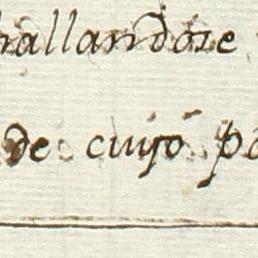 hallandose
de cuyo po